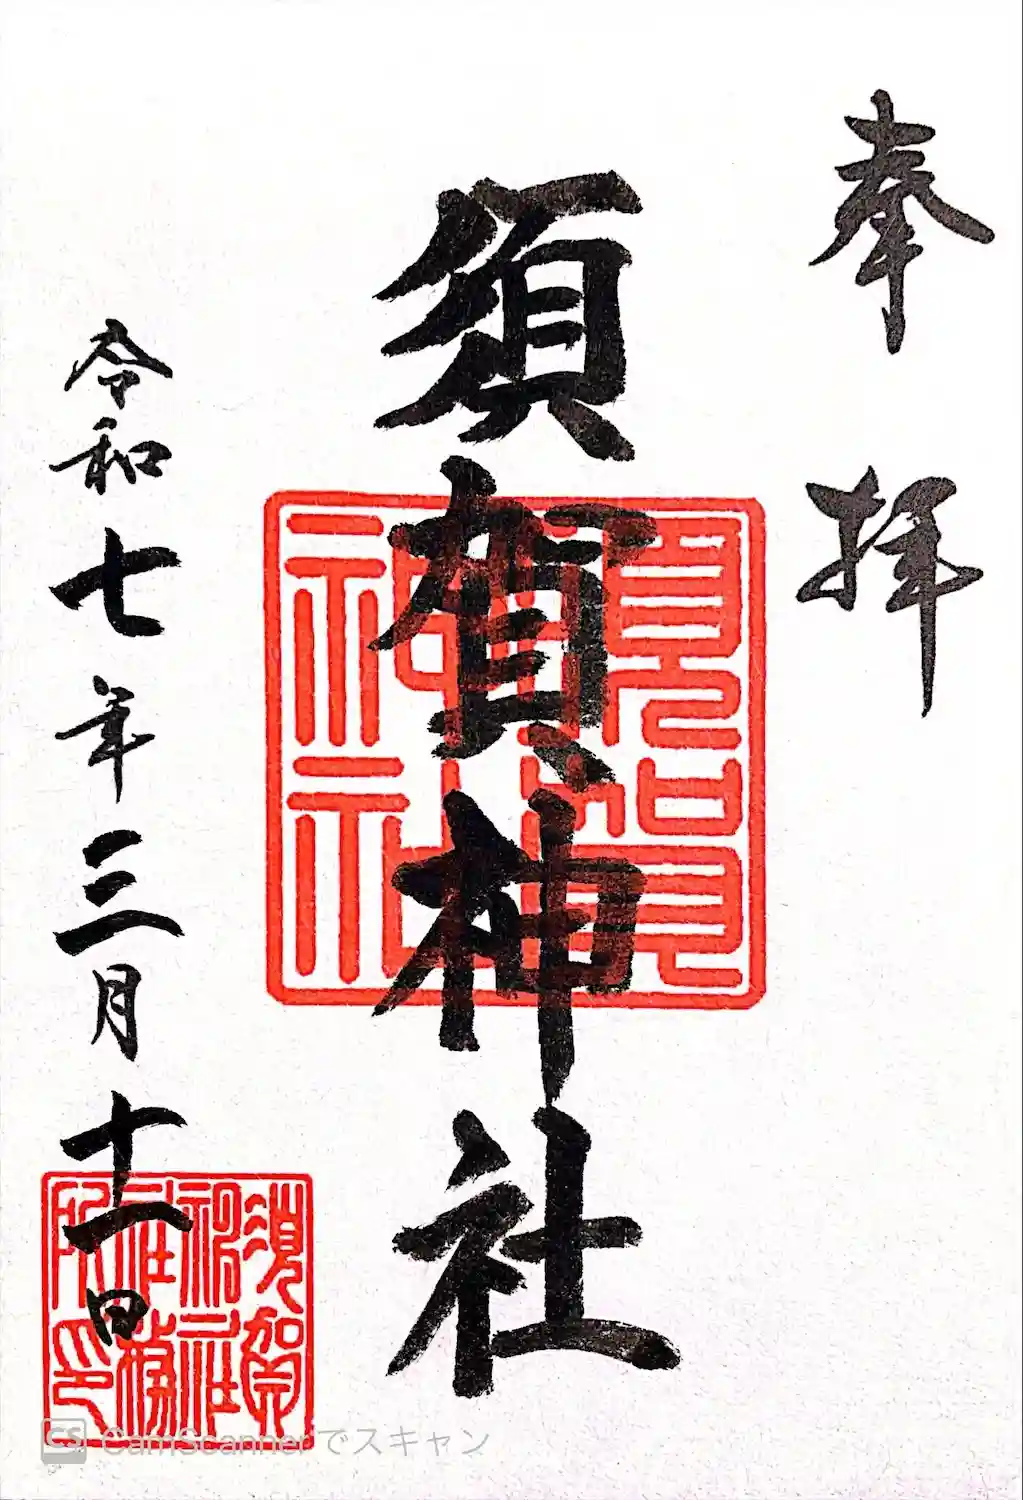 奉拝
須賀神社
須賀神社
令和七年三月十一日
須賀神社社務所印
CS CamScannerでスキャン